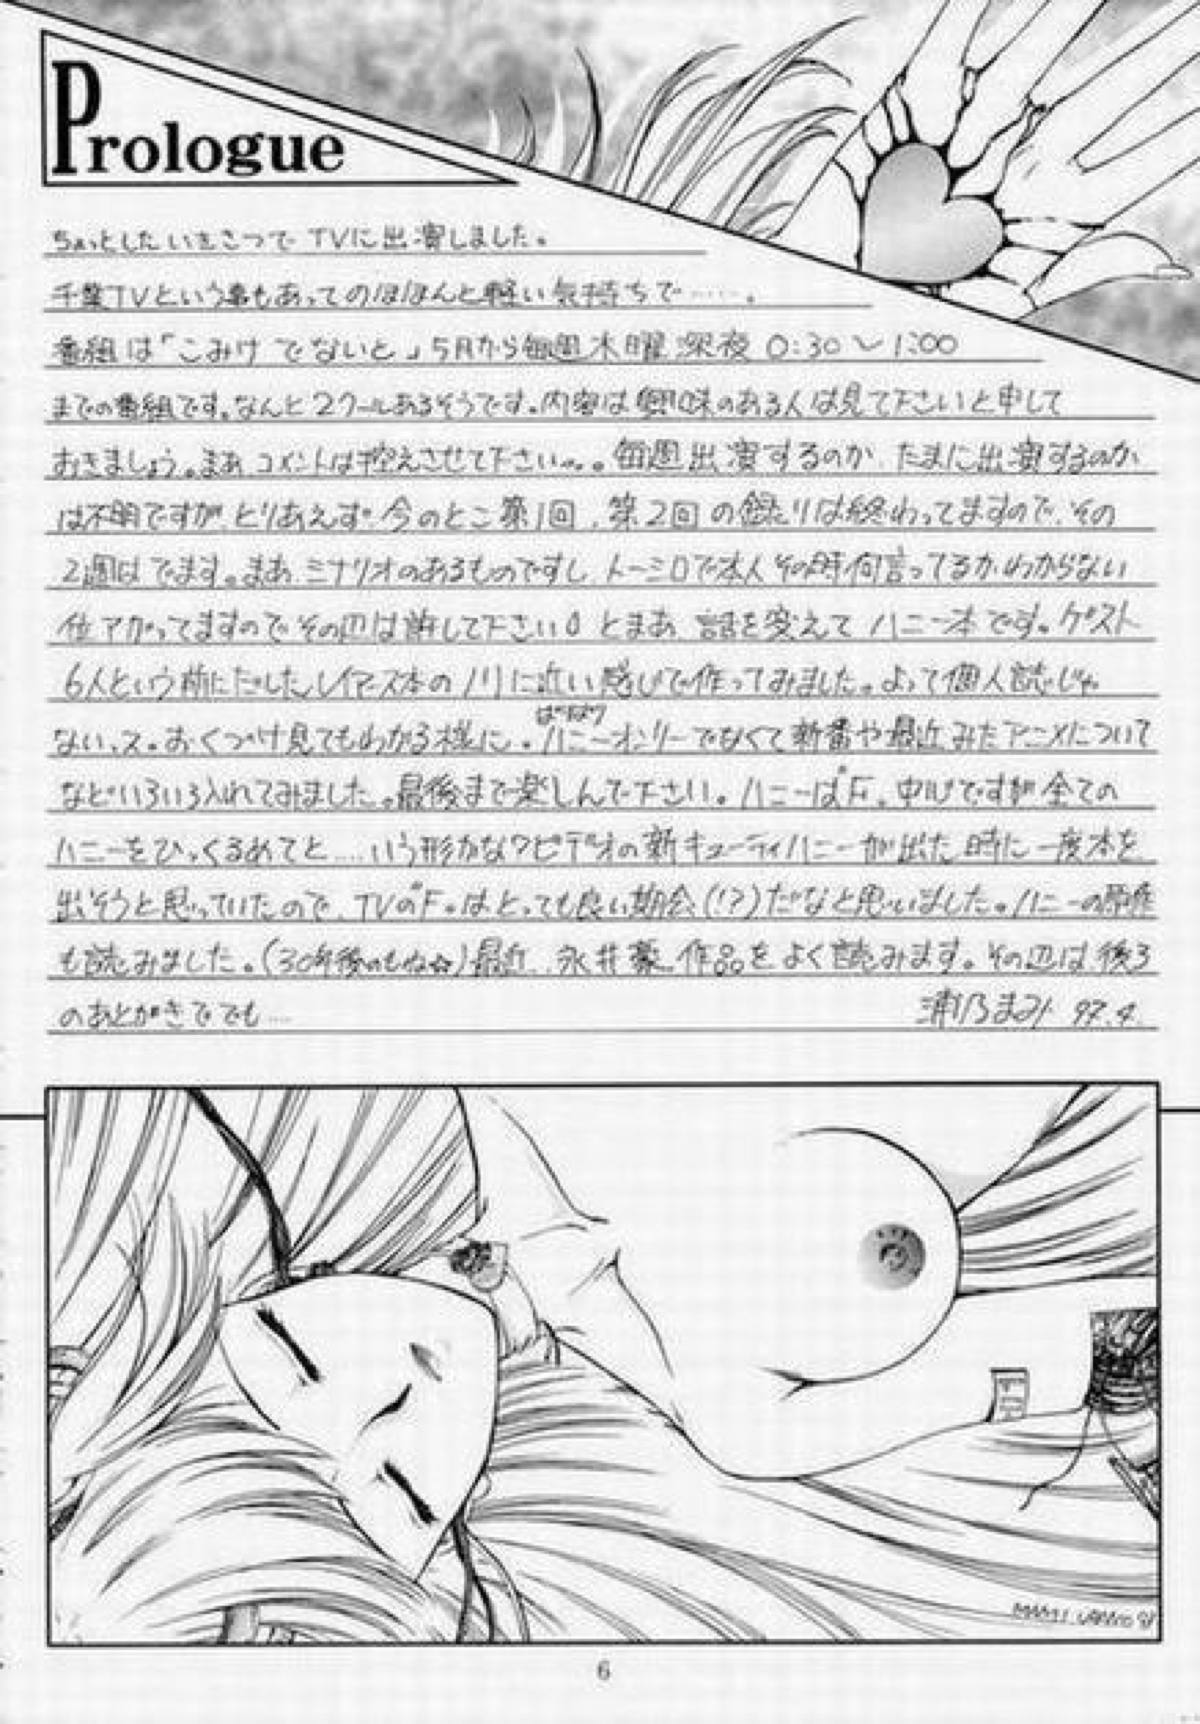 Prologue
ちょっとしたいきさつで TVに出演しました。
千葉TVという事もあってのほほんと軽い気持ちで……。
番組は「こみけ でないと」5月から毎週木曜深夜 0:30〜1:00
までの番組です。なんと2クールあるそうです。内容は興味のある人は見て下さいと申して
おきましょう。まあ コメントは控えさせて下さい…。毎週出演するのか、たまに出演するのか
は不明ですが、とりあえず 今のとこ 第1回、第2回の録りは終わってますので、その
2週はでます。まあ シナリオのあるものですし、トーシロで本人その時何言ってるかわからない
位アガってますのでその辺は許して下さい とまあ 話を変えて ハニー本です。ゲスト
6人という前にだしたレイアース本のノリに近い感じで作ってみました。よって個人誌じゃ
ないッス。おくづけ見てもわかる様に。ハニーオンリーでなくて新番や最近みたアニメについて
などいろいろ入れてみました。最後まで楽しんで下さい。ハニーは"F"中心ですが全ての
ハニーをひっくるめてと……いう形かな?ビデオの新キューティハニーが出た時に一度本を
出そうと思っていたので、TVの"F"はとっても良い期会(!?)だなと思いました。ハニーの原作
も読みました。(30年後のもね☆)最近、永井豪 作品をよく読みます。その辺は後ろ
のあとがきででも……
浦乃まみ 97.4.
MAMI.URANO
6